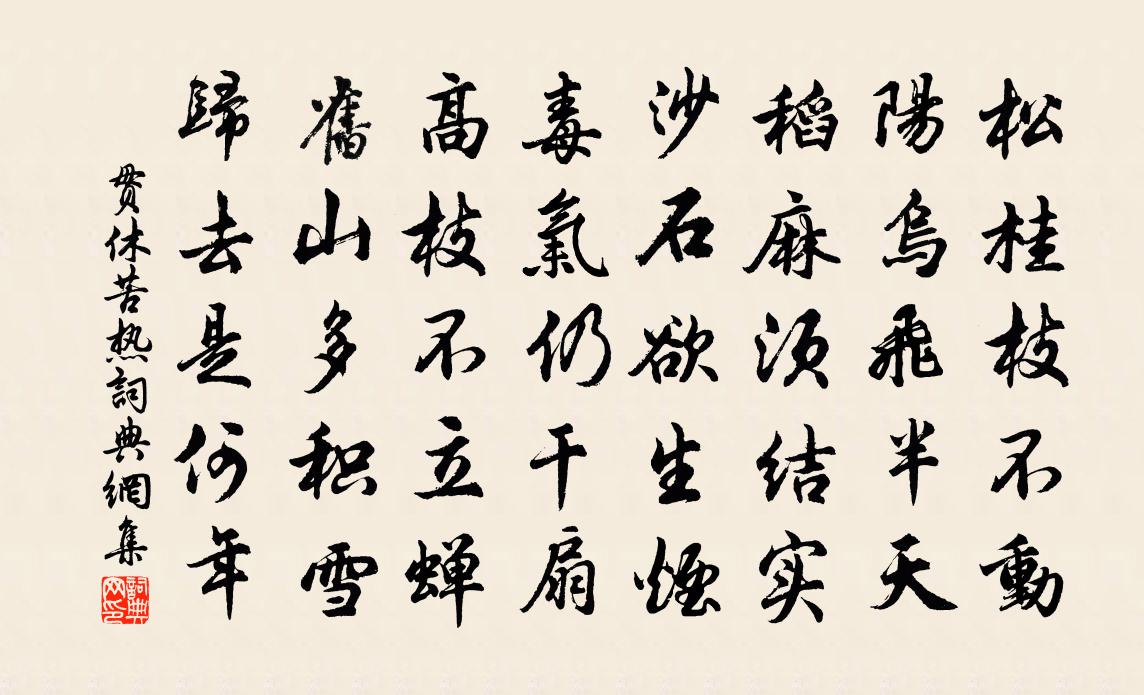 松桂枝不動
陽烏飛半天
稻麻须结实
沙石欲生煙
毒氣仍干扇
高枝不立蝉
舊山多积雪
歸去是何年
贯休苦热詞典網集
詞典
网印